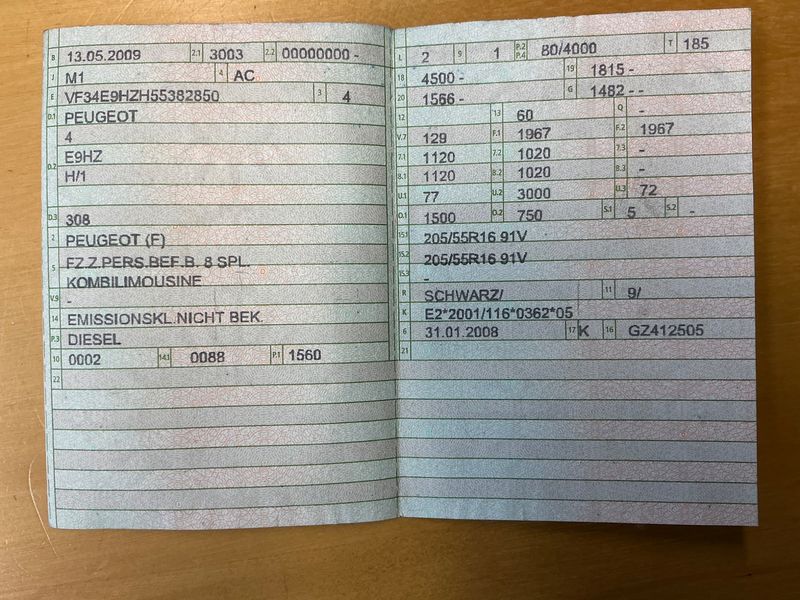 B 13.05.2009 2.1 3003 2.2 00000000 -
J M1 4 AC
E VF34E9HZH55382850 3 4
D.1 PEUGEOT
4
D.2 E9HZ
H/1
D.3 308
2 PEUGEOT (F)
5 FZ.Z.PERS.BEF.B. 8 SPL.
KOMBILIMOUSINE
V.9 -
14 EMISSIONSKL.NICHT BEK.
P.3 DIESEL
10 0002 14.1 0088 P.1 1560
22
L 2 9 1 P.2 P.4 80/4000 T 185
18 4500 - 19 1815 -
20 1566 - G 1482 - -
12 13 60 Q -
V.7 129 F.1 1967 F.2 1967
7.1 1120 7.2 1020 7.3 -
8.1 1120 8.2 1020 8.3 -
U.1 77 U.2 3000 U.3 72
O.1 1500 O.2 750 S.1 5 S.2 -
15.1 205/55R16 91V
15.2 205/55R16 91V
15.3 -
R SCHWARZ/ 11 9/
K E2*2001/116*0362*05
6 31.01.2008 17 K 16 GZ412505
21